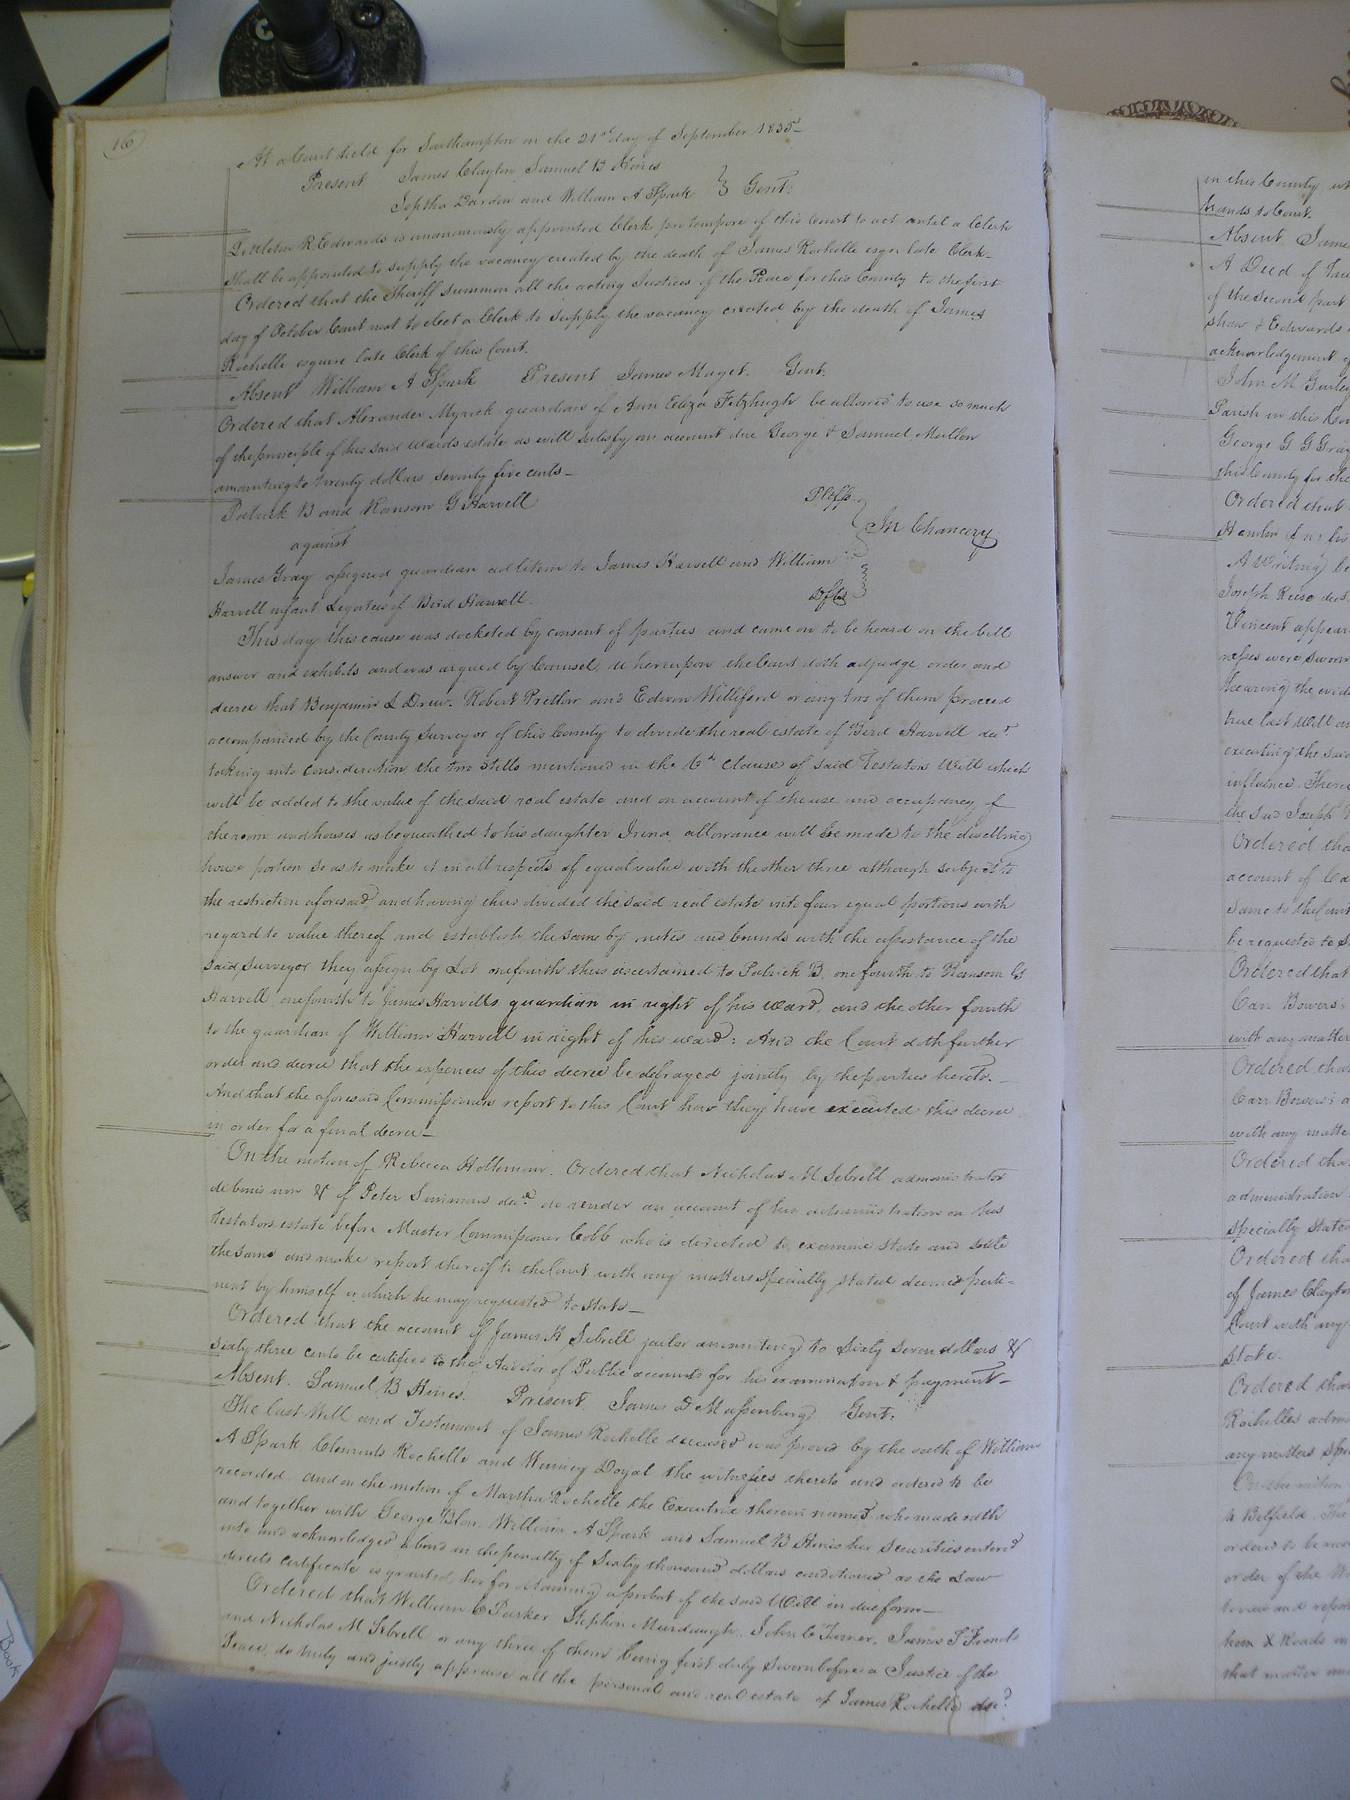 16
At a Court held for Southampton on the 21st day of September 1835
Present James Clayton Samuel B Hines
Jeptha Darden and William A Spark } Gent:
Littleton R Edwards is unanimously appointed Clerk pro tempore of this Court to act until a Clerk
shall be appointed to supply the vacancy created by the death of James Rochelle esqr late Clerk-
Ordered that the Sheriff summon all the acting Justices of the Peace for this County to the first
day of October Court next to elect a Clerk to supply the vacancy created by the death of James
Rochelle esquire late Clerk of this Court.
Absent William A Spark Present James Maget. Gent.
Ordered that Alexander Myrick guardian of Ann Eliza Fitzhugh be allowed to use so much
of the principle of his said wards estate as will satisfy an account due George & Samuel
amounting to twenty dollars seventy five cents-
Patrick B and Ransom G Harvell Pltffs
against In Chancery
James Gray assigned guardian ad litem to James Harvell and William
Harvell infant Legatees of Bird Harvell. Dfts
This day this cause was docketed by consent of parties and came on to be heard on the bill
answer and exhibits and was argued by Counsel, whereupon the Court doth adjudge order and
decree that Benjamin L Drew. Robert Pretlow and Edwin Williford or any two of them proceed
accompanied by the County Surveyor of this County to divide the real estate of Bird Harvell decd
tacking into consideration the two Stills mentioned in the 6th Clause of said Testators Will which
will be added to the value of the said real estate and on account of the use and occupancy of
the room and houses as bequeathed to his daughter Irena allowance will be made to the dwelling
house portion so as to make it in all respects of equal value with the other three although subject to
the restriction aforesaid, and having thus divided the said real estate into four equal portions with
regard to value thereof and establish the same by metes and bounds with the assistance of the
said surveyor they assign by Lot one fourth thus ascertained to Patrick B, one fourth to Ransom G
Harvell one fourth to James Harvells guardian in right of his ward, and the other fourth
to the guardian of William Harvell in right of his ward: And the Court doth further
order and decree that the expences of this decree be defrayed jointly by the parties hereto.-
And that the aforesaid Commissioners report to this Court how they have executed this decree
in order for a final decree-
On the motion of Rebecca. Ordered that Nicholas M Sebrell administrator
de bonis non &c of Peter Simmons decd. do render an account of his administration on his
testators estate before Master Commissioner Cobb who is directed to examine state and settle
the same and make report thereof to the Court with any matters specially stated deemed perti-
nent by himself or which he may requested to state-
Ordered that the account of James H Sebrell jailor amounting to sixty seven dollars &
sixty three cents be certified to the Auditor of Public accounts for his examination & payment-
Absent. Samuel B Hines. Present James D Massenburg Gent:
The last Will and Testament of James Rochelle deceased was proved by the oath of William
A Spark Clements Rochelle and Doyal the witnesses thereto and ordered to be
recorded. and on the motion of Martha Rochelle the Executrix therein named who made oath
and together with George Blow. William A Spark and Samuel B Hines her Securities entered
into and acknowledged a bond in the penalty of Sixty thousand dollars conditioned as the Law
directs certificate is granted her for obtaining a probat of the said Will in due form-
Ordered that William C Parker Stephen Murdaugh, John C Turner, James S French
and Nicholas M Sebrell or any three of them being first duly sworn before a Justice of the
Peace, do truly and justly appraise all the personal and real estate of James Rochelle decd
in this County
hands to Court.
Absent Jame
A Deed of
of the second part
shaw & Edwards
acknowledgement of
John M Gurley
Parish in this
George G G Gray
this County for the
Ordered that
A Writing be
Joseph
Vincent appear
nesses were sworn
hearing the evid
true last Will an
executing the said
influence. There
the said Joseph
Ordered tha
account of
same to the
be requested to
Ordered that
Carr Bowers
with any matter
Ordered that
Carr Bowers
with any matte
Ordered tha
administration
specially state
Ordered tha
of James Clayto
Court with any
State.
Ordered tha
Rochelles adm
any matters spe
On the motion
to Belfield. The
ordered to be
order of the
to view and repor
X Roads
that matter
Book